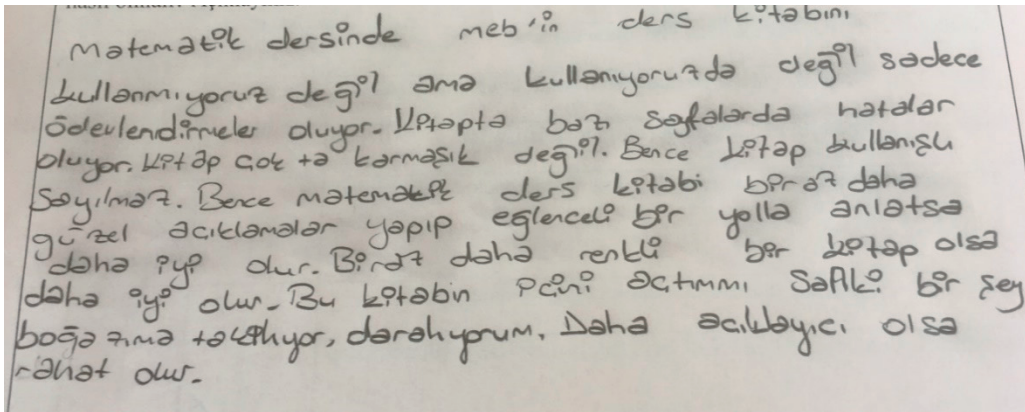 Matematik dersinde meb'in ders kitabını
kullanmıyoruz değil ama kullanıyoruzda değil sadece
ödevlendirmeler oluyor. Kitapta bazı sayfalarda hatalar
oluyor. Kitap çok ta karmaşık değil. Bence kitap kullanışlı
Sayılmaz. Bence matematik ders kitabi biraz daha
güzel acıklamalar yapıp eğlenceli bir yolla anlatsa
daha iyi olur. Biraz daha renkli bir kitap olsa
daha iyi olur. Bu kitabın içini açtımmı Sanki bir şey
boğazıma takılıyor, daralıyorum. Daha acıklayıcı olsa
rahat olur.